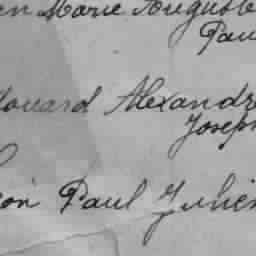 en Marie Auguste
Pau
douard Alexandre
Joseph
éon Paul Julien